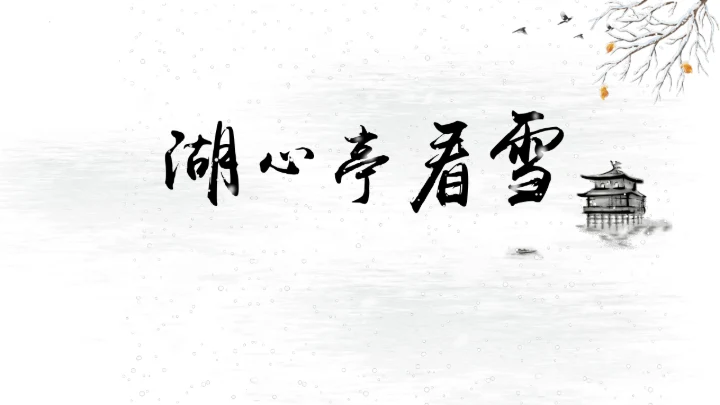 湖心亭看雪